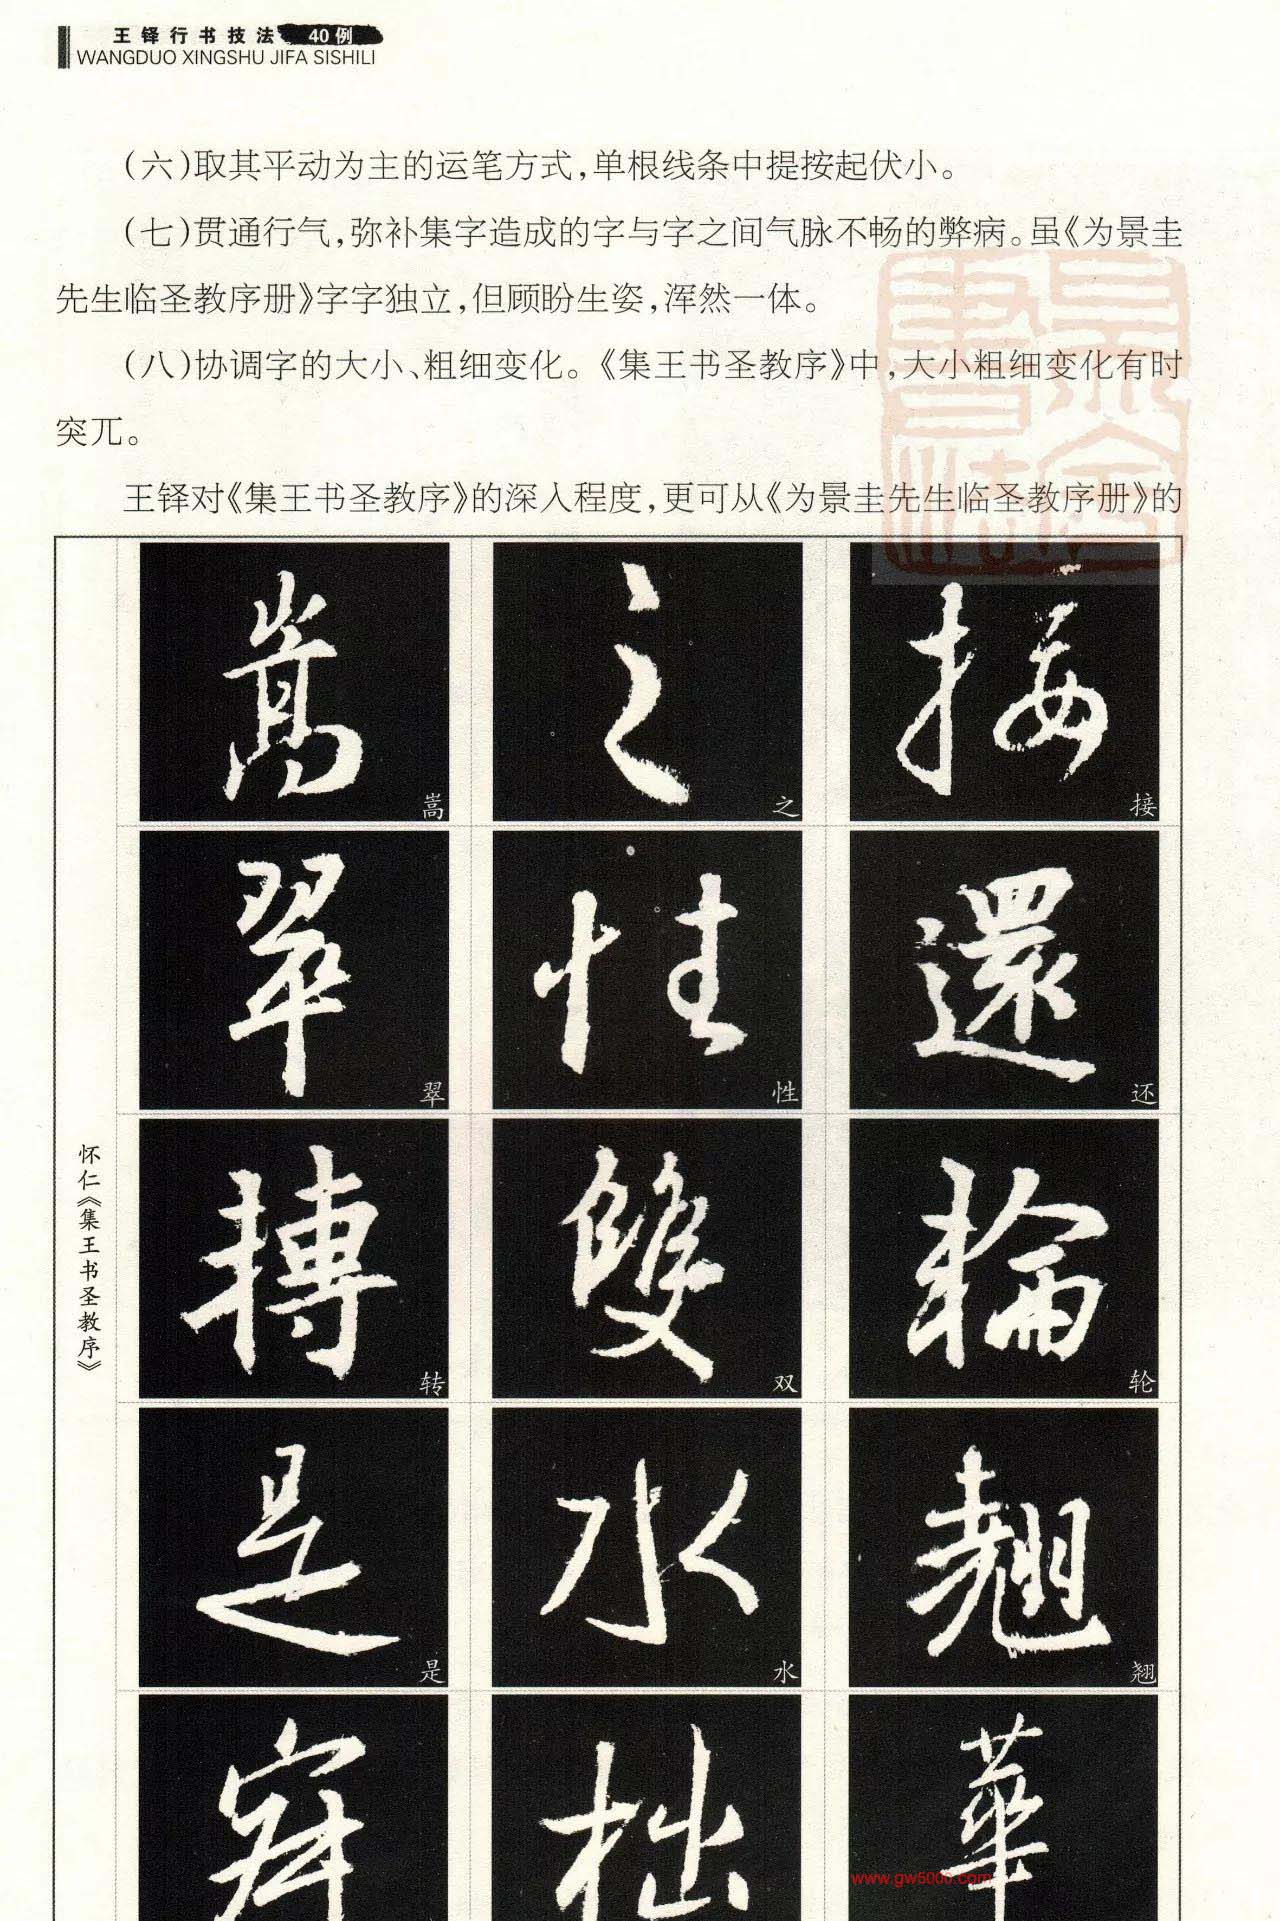 王铎行书技法 40例
WANGDUO XINGSHU JIFA SISHILI
(六)取其平动为主的运笔方式,单根线条中提按起伏小。
(七)贯通行气,弥补集字造成的字与字之间气脉不畅的弊病。虽《为景圭
先生临圣教序册》字字独立,但顾盼生姿,浑然一体。
(八)协调字的大小、粗细变化。《集王书圣教序》中,大小粗细变化有时
突兀。
王铎对《集王书圣教序》的深入程度,更可从《为景圭先生临圣教序册》的
怀仁《集王书圣教序》
嵩 之 接
嵩 之 接
翠 性 還
翠 性 还
摶 雙 輪
转 双 轮
是 水 翹
是 水 翘
拙 華
www.gw5000.com